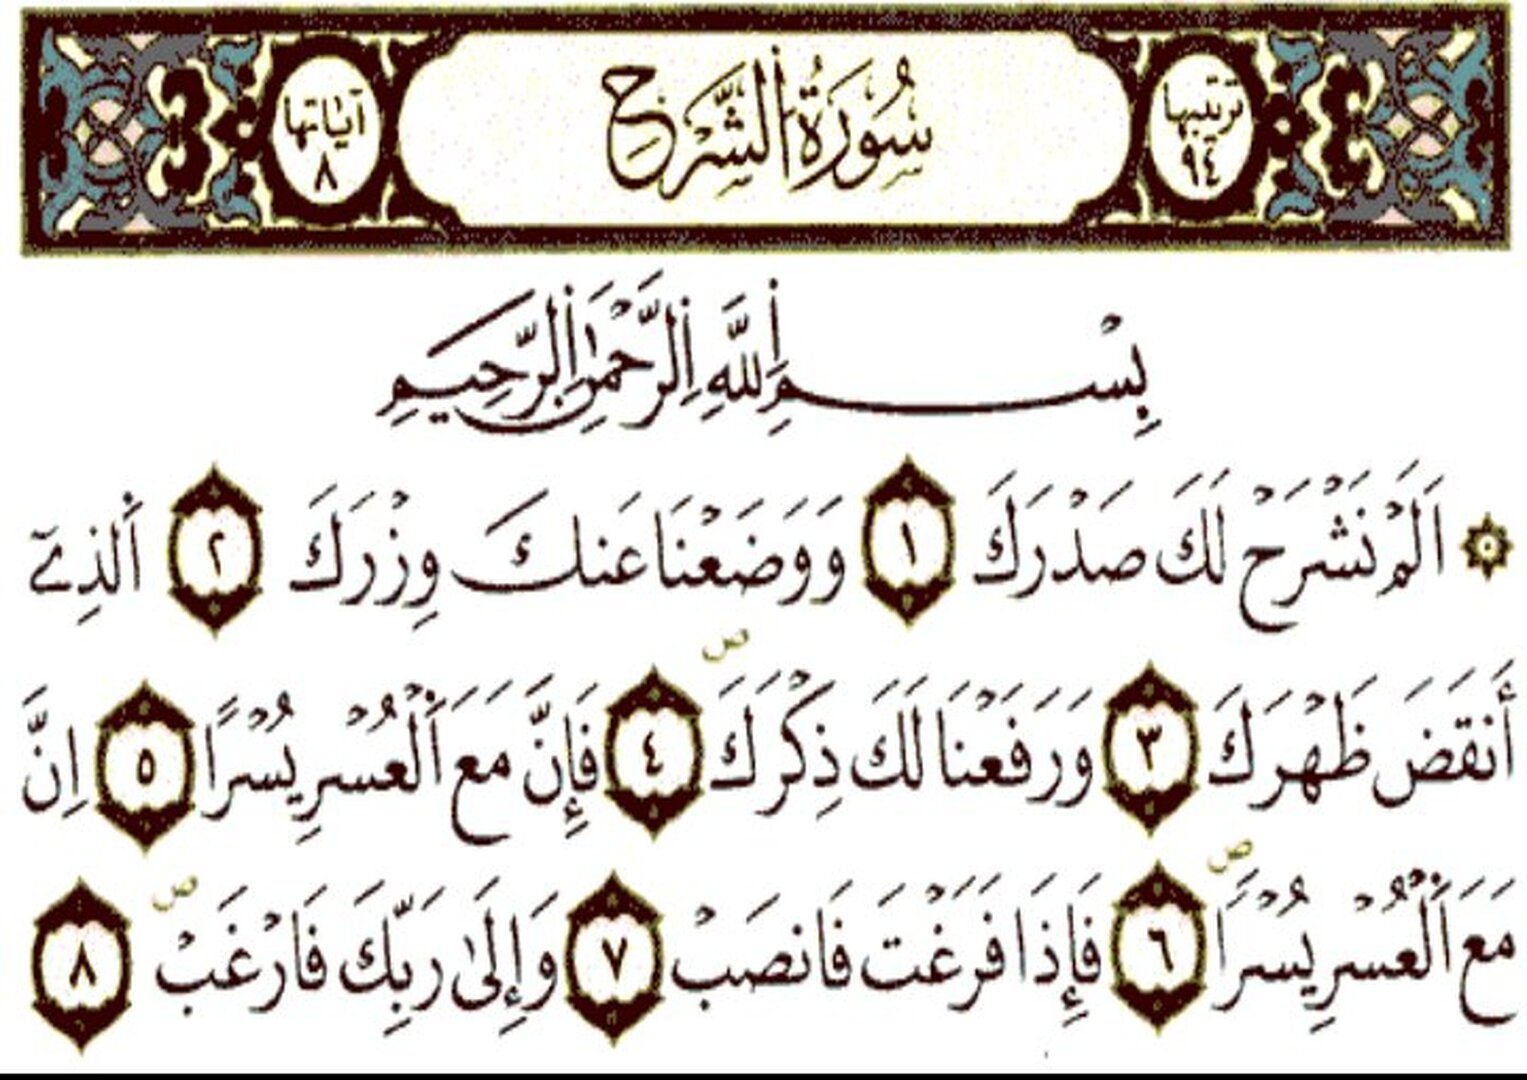 ترتيبها ٩٤ سُورَةُ الشَّرْحِ آيَاتها ٨
بِسْمِ اِللَّهِ اِلرَّحْمَٰنِ اِلرَّحِيمِ
۞ اَلَمْ نَشْرَحْ لَكَ صَدْرَكَ ١ وَوَضَعْنَا عَنكَ وِزْرَكَ ٢ اَلذِےٓ
أَنقَضَ ظَهْرَكَ ٣ وَرَفَعْنَا لَكَ ذِكْرَكَ ص ٤ فَإِنَّ مَعَ اَلْعُسْرِ يُسْرًا ٥ اِنَّ
مَعَ اَلْعُسْرِ يُسْرًا ص ٦ فَإِذَا فَرَغْتَ فَانصَبْ ٧ وَإِلَىٰ رَبِّكَ فَارْغَبْ ص ٨